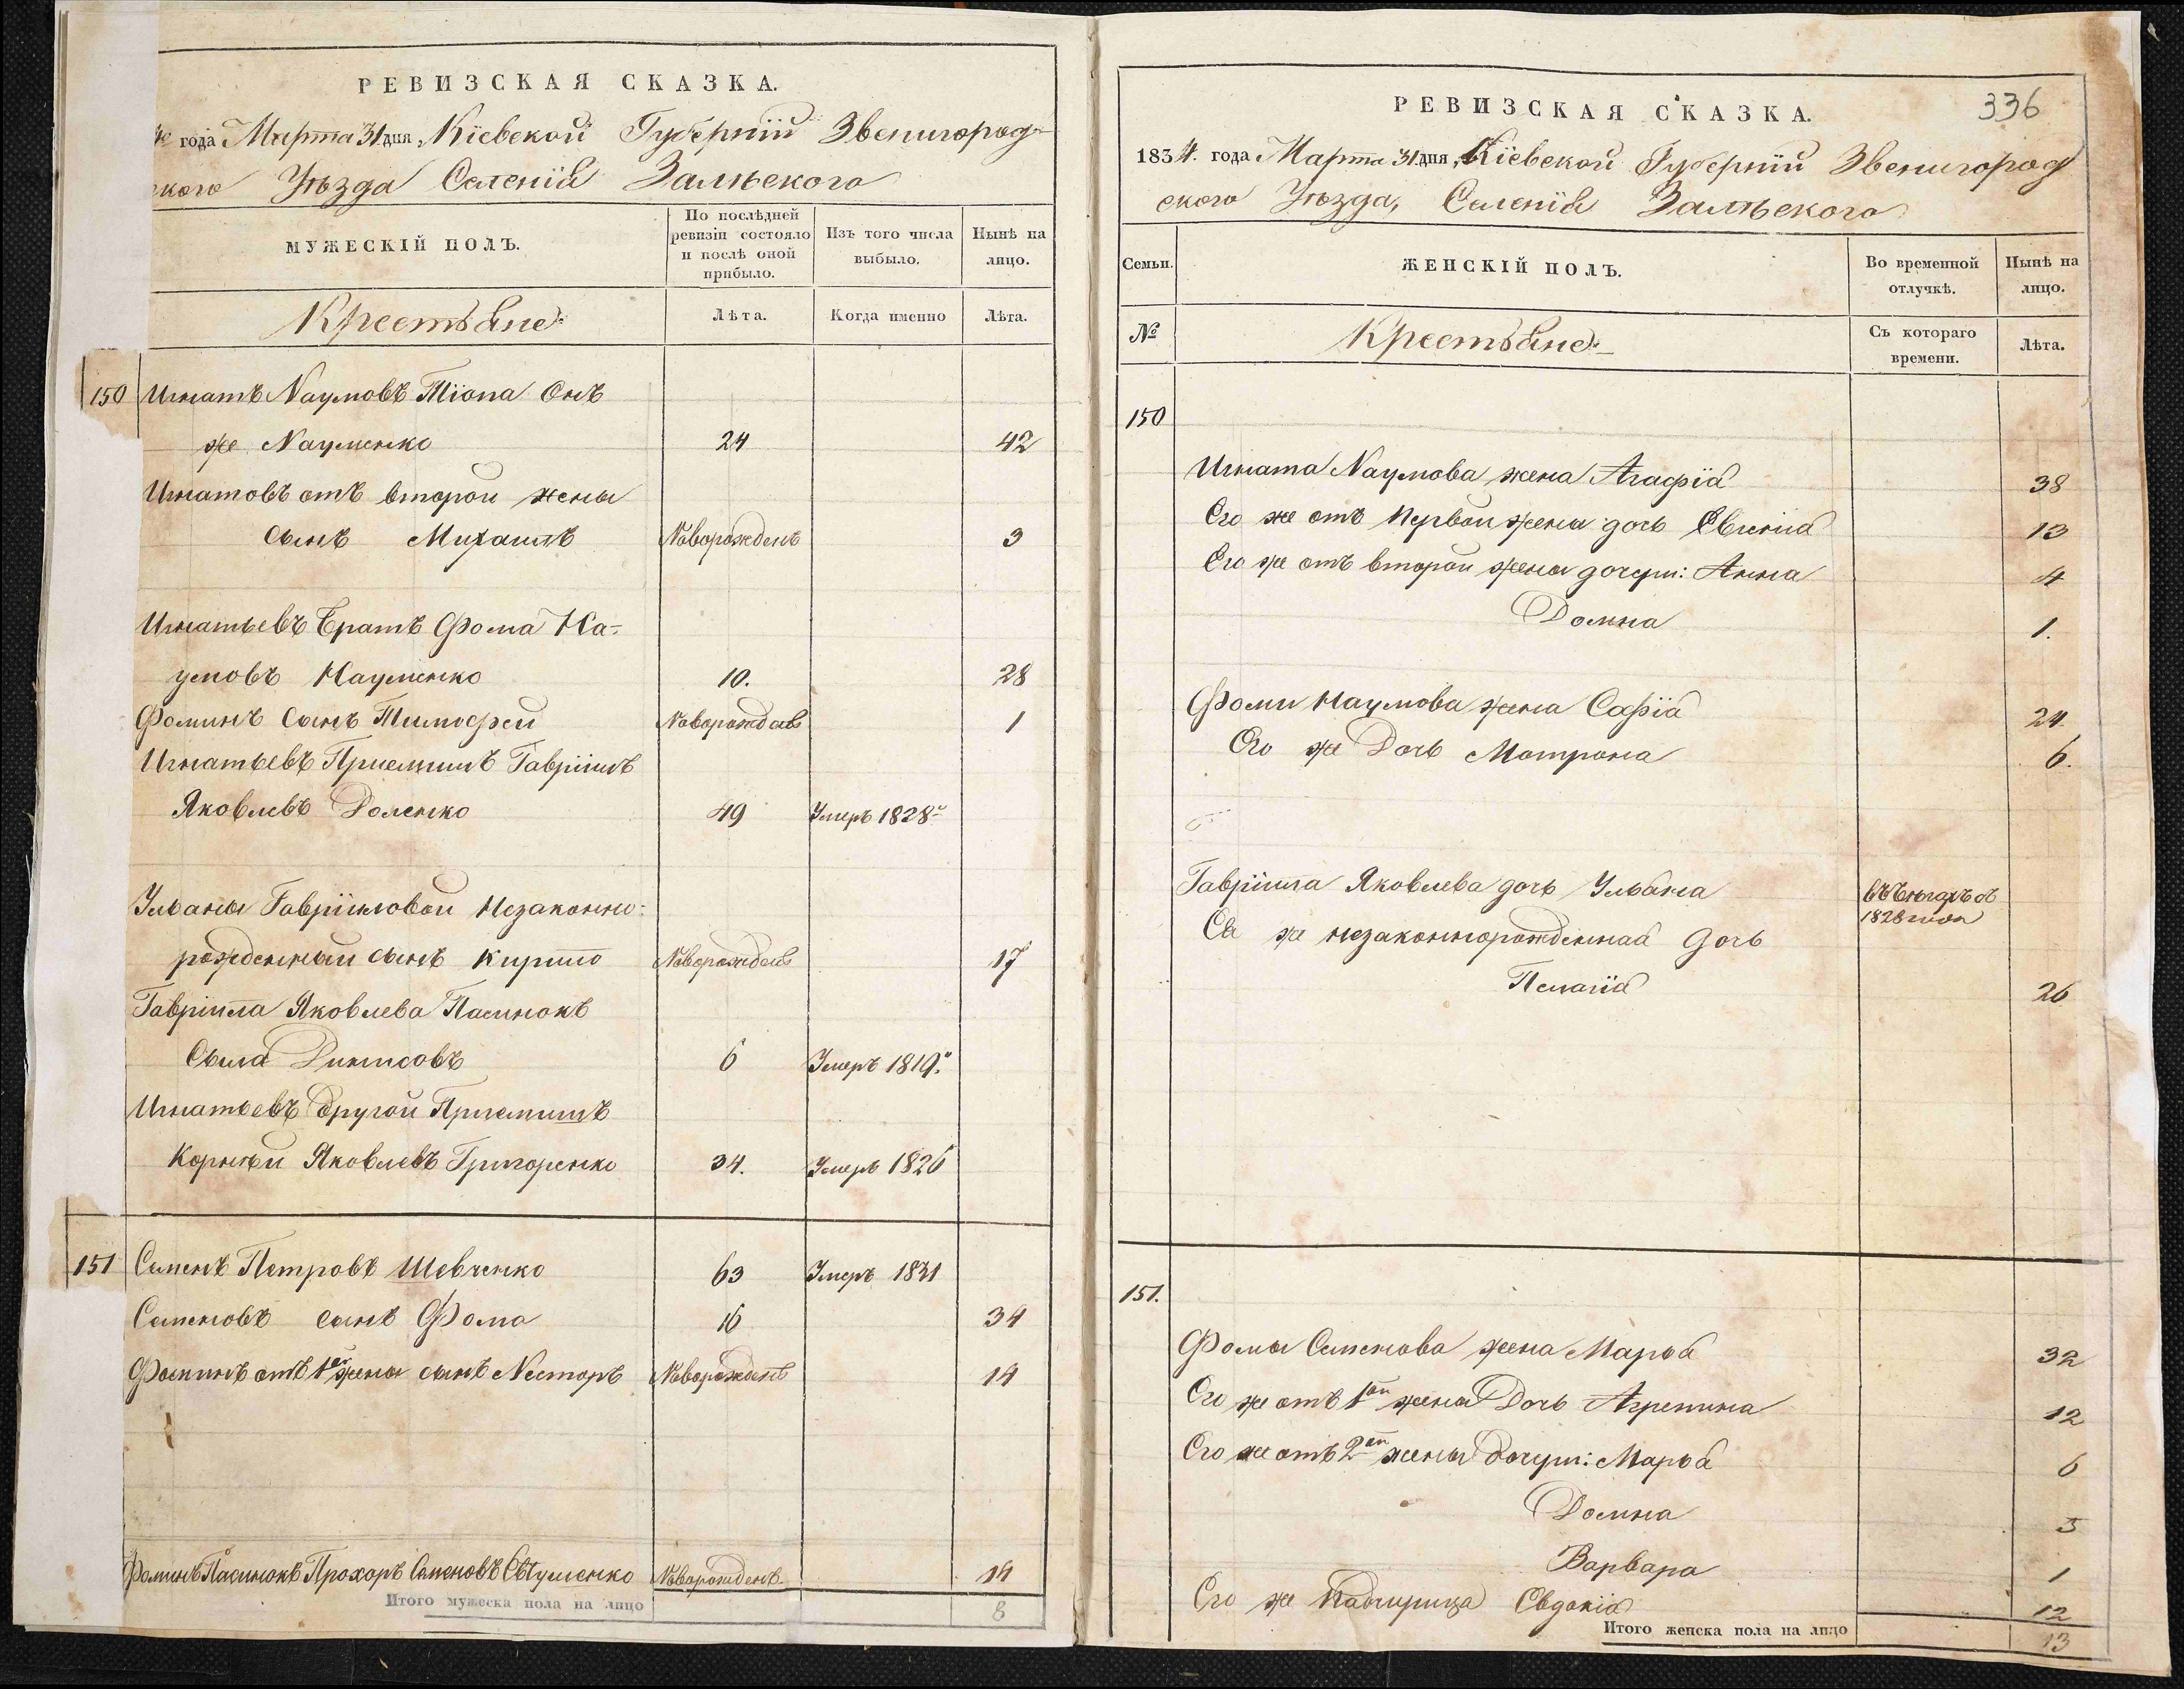 РЕВИЗСКАЯ СКАЗКА.
года Марта 31 дня, Кіевской Губерніи Звенигород-
ского Уѣзда Селенія Залѣского
МУЖЕСКІЙ ПОЛЪ.
По послѣдней ревизіи состояло и послѣ оной прибыло.
Изъ того числа выбыло.
Нынѣ на лицо.
Крестьяне
Лѣта.
Когда именно
Лѣта.
150 Игнатъ Наумовъ Тіопа Онъ
же Науменко 24 42
Игнатовъ отъ второй жены
сынъ Михаилъ Новорожденъ 3
Игнатьевъ братъ Фома На-
умовъ Науменко 10. 28
Фоминъ сынъ Тимофей Новорожденъ 1
Игнатьевъ Приемишъ Гавріилъ
Яковлевъ Доленко 49 Умеръ 1828
Ульяны Гавріиловой Незаконно-
рожденный сынъ Кирило Новорожденъ 17
Гавріила Яковлева Пасинокъ
Сыла Динисовъ 6 Умеръ 1819
Игнатьевъ другой Приемишъ
Корнѣй Яковлевъ Григоренко 34. Умеръ 1826
151 Семенъ Петровъ Шевченко 63 Умеръ 1831
Семеновъ сынъ Фома 16 34
Фоминъ отъ 1ой жены сынъ Несторъ Новорожденъ 14
Фоминъ Пасинокъ Прохоръ Семеновъ Новорожденъ 14
Итого мужеска пола на лицо 8
336
РЕВИЗСКАЯ СКАЗКА.
1834. года Марта 31 дня, Кіевской Губерніи Звенигород
ского Уѣзда, Селенія Залѣского
Семьи.
ЖЕНСКІЙ ПОЛЪ.
Во временной отлучкѣ.
Нынѣ на лицо.
№
Крестьяне
Съ котораго времени.
Лѣта.
150
Игната Наумова жена Агафія 38
Его же отъ первой жены дочь Евгенія 13
Его же отъ второй жены дочери: Анна 4
Домна 1.
Фоми Наумова жена Софія 24
Его же Дочь Матрона 6.
Гавріила Яковлева дочь Ульяна въ бѣгахъ съ
1828 года
Ея же незаконнорожденная дочь
Пелагія 26
151.
Фомы Семенова жена Марья 32
Его же отъ 1ой жены Дочь Агрепина 12
Его же отъ 2ой жены дочери: Марья 6
Домна 3
Варвара 1
Его же Падчирица Евдокія 12
Итого женска пола на лицо 13